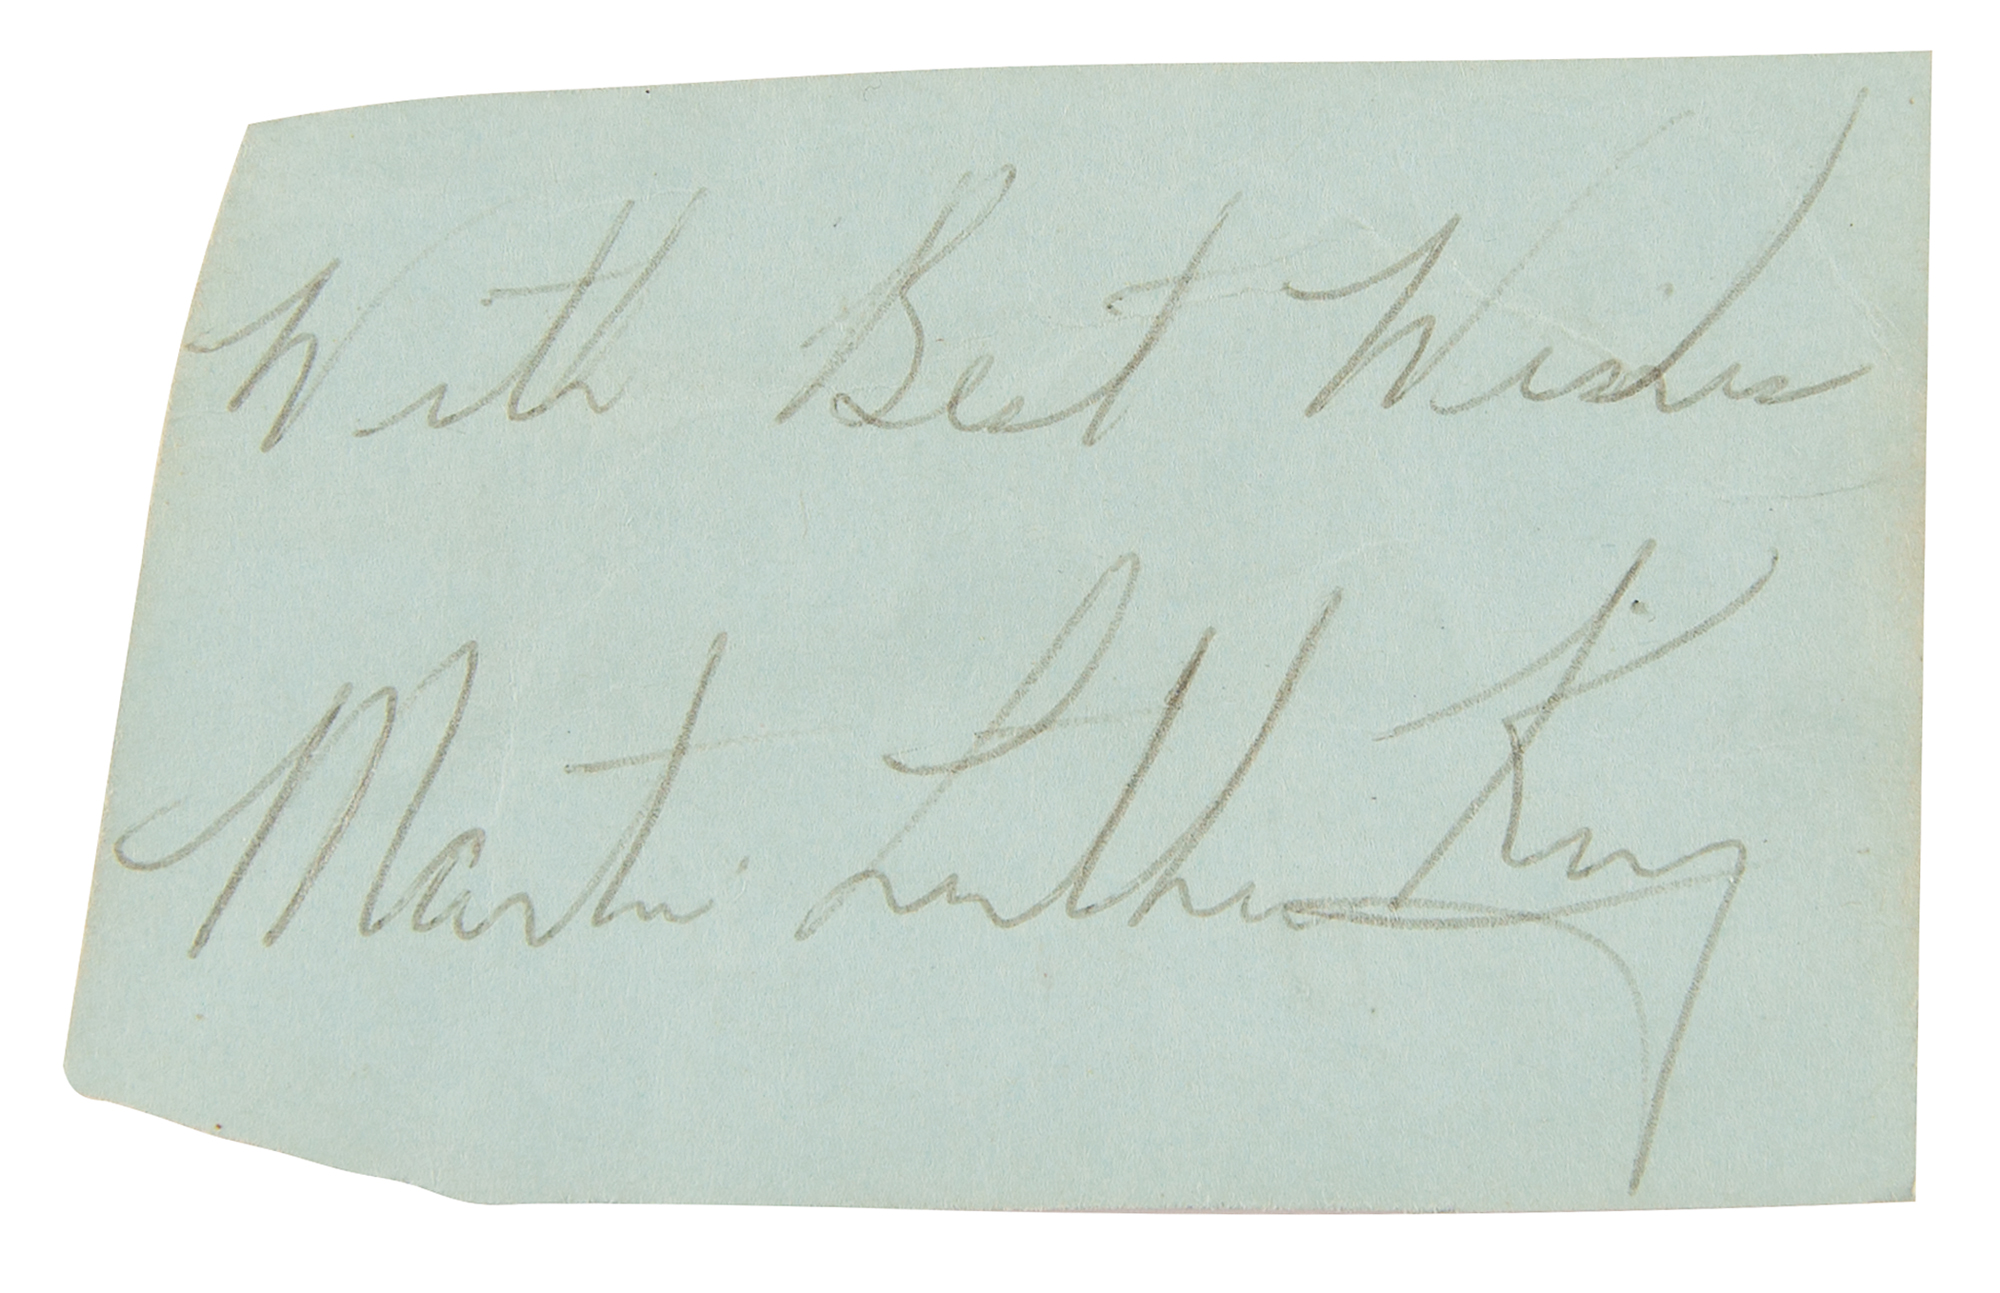 With Best Wishes
Martin Luther King